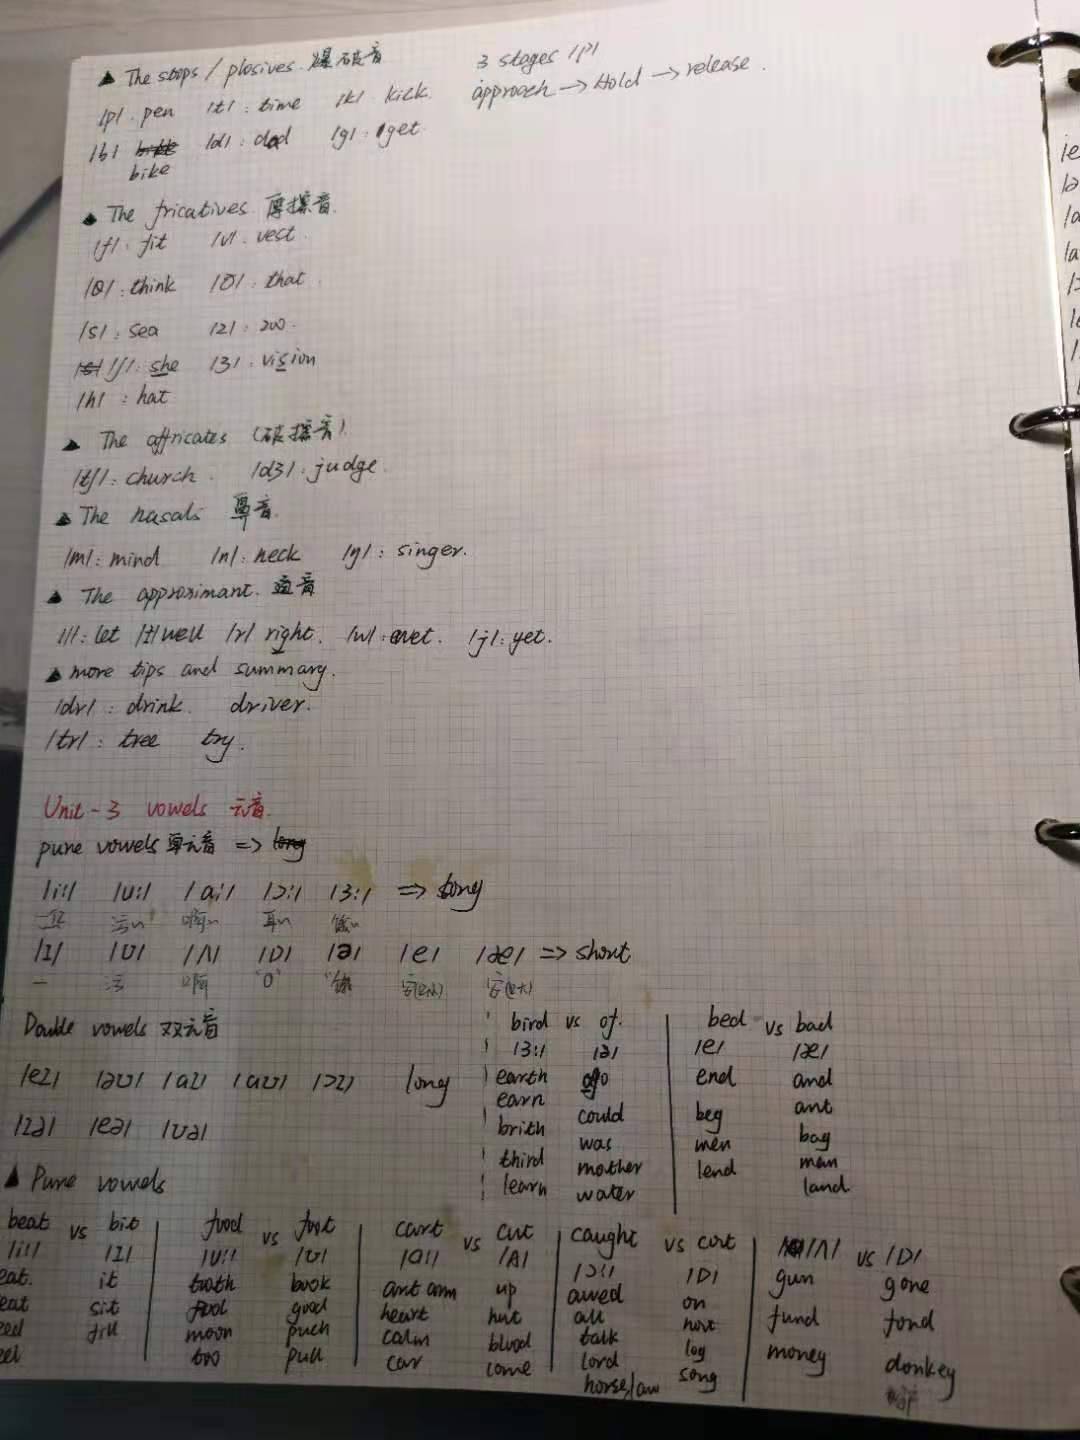 ▲ The stops / plosives 爆破音
3 stages /p/
approach → Hold → release.
/p/. pen /t/: time /k/. kick.
/b/ /d/: dad /g/: get
bike
▲ The fricatives 摩擦音.
/f/: fit /v/. vest.
/θ/: think /ð/: that
/s/: sea /z/: zoo.
/ʃ/: she /ʒ/: vision
/h/ : hat
▲ The affricates (破擦音).
/tʃ/: church. /dʒ/: judge.
▲ The nasals 鼻音.
/m/: mind /n/: neck /ŋ/: singer.
▲ The approximant.
/l/: let /ɫ/ well /r/ right. /w/: wet. /j/: yet.
▲ more tips and summary.
/dr/: drink. driver.
/tr/: tree try.
Unit-3 vowels 元音.
pure vowels 单元音 => long
/i:/ /u:/ /ɑ:/ /ɔ:/ /ɜ:/ => long
/ɪ/ /ʊ/ /ʌ/ /ɒ/ /ə/ /e/ /æ/ => short
一 "o"
Double vowels 双元音
/eɪ/ /əʊ/ /aɪ/ /aʊ/ /ɔɪ/ long
/ɪə/ /eə/ /ʊə/
bird vs of. bed vs bad
/ɜ:/ /ə/ /e/ /æ/
earth ago end and
earn could beg ant
brith was men bag
third mother lend man
learn water land
▲ Pure vowels
beat vs bit food vs foot cart vs cut caught vs cot /ʌ/ vs /ɒ/
/i:/ /ɪ/ /u:/ /ʊ/ /ɑ:/ /ʌ/ /ɔ:/ /ɒ/ gun gone
eat. it tooth book aunt arm up awed on fund fond
sit food good heart hut all hot money donkey
fill moon push calm blood talk log
too pull car come lord song
horse/law